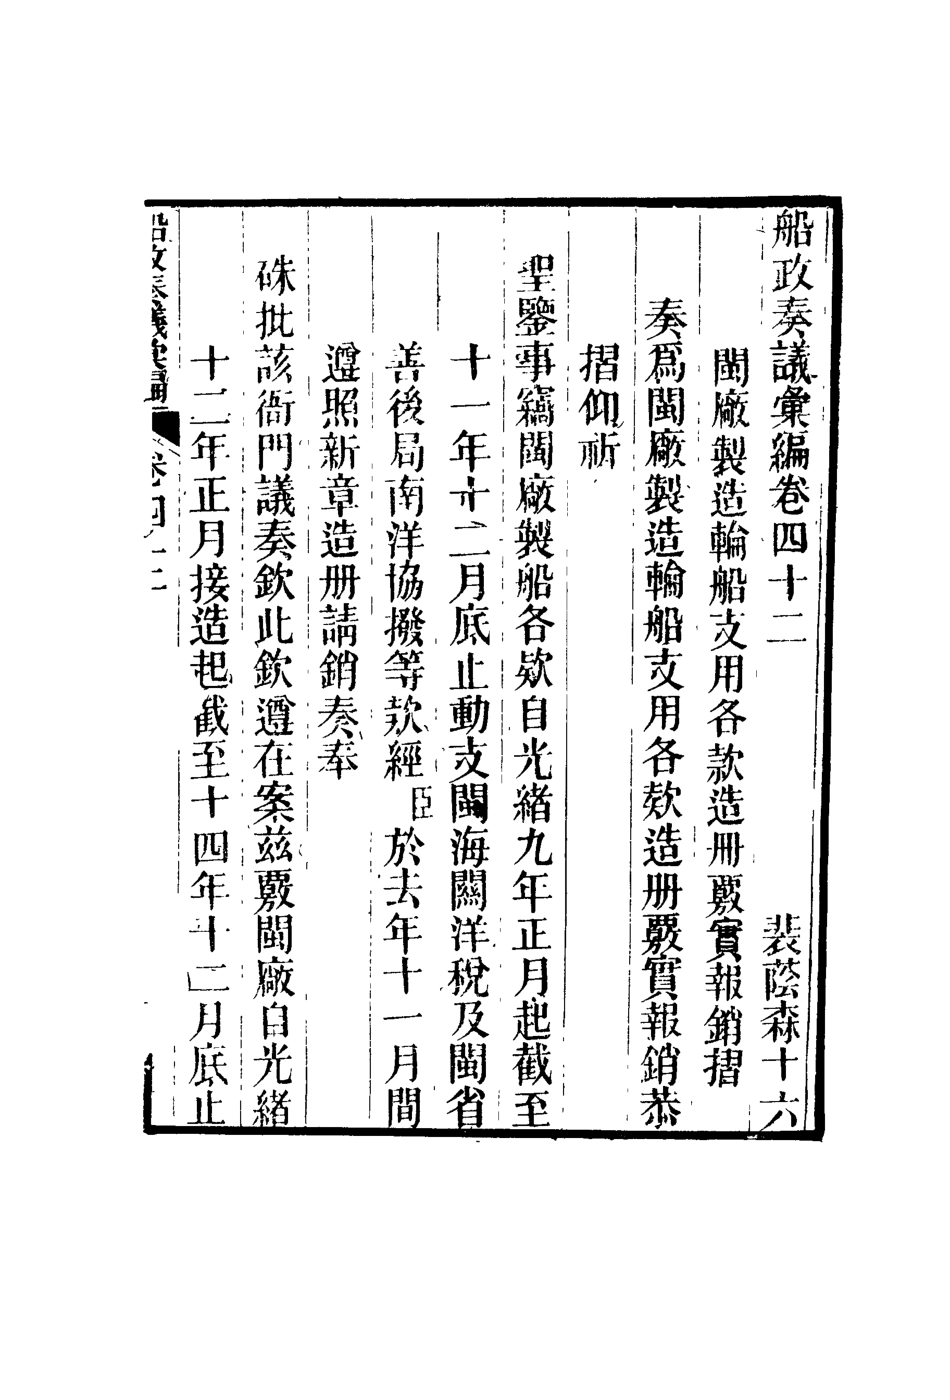 船政奏議彙編卷四十二　裴蔭森十六
閩廠製造輪船支用各款造册覈實報銷摺
奏爲閩廠製造輪船支用各欵造册覈實報銷恭
摺仰祈
聖鑒事竊閩廠製船各欵自光緒九年正月起截至
十一年十二月底止動支閩海關洋稅及閩省
善後局南洋協撥等款經臣於去年十一月間
遵照新章造册請銷奏奉
硃批該衙門議奏欽此欽遵在案茲覈閩廠自光緒
十二年正月接造起截至十四年十二月底止
船政奏議彙編 卷四十二